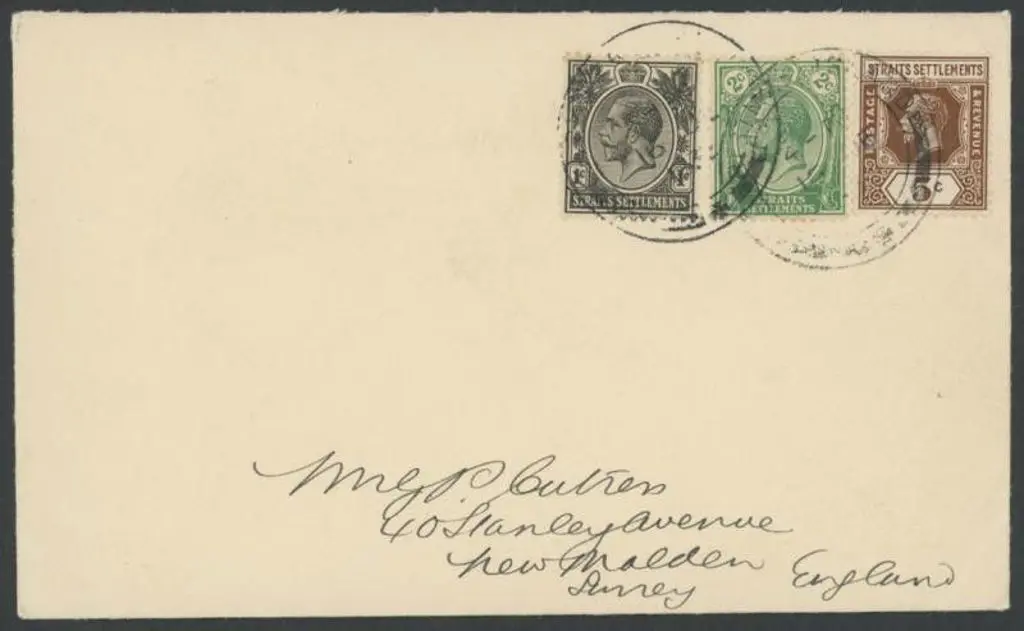 STRAITS SETTLEMENTS
1c 1c
STRAITS SETTLEMENTS
2c 2c
STRAITS
SETTLEMENTS
POSTAGE & REVENUE
5c
P.
40 Stanley Avenue
New Malden
Surrey England